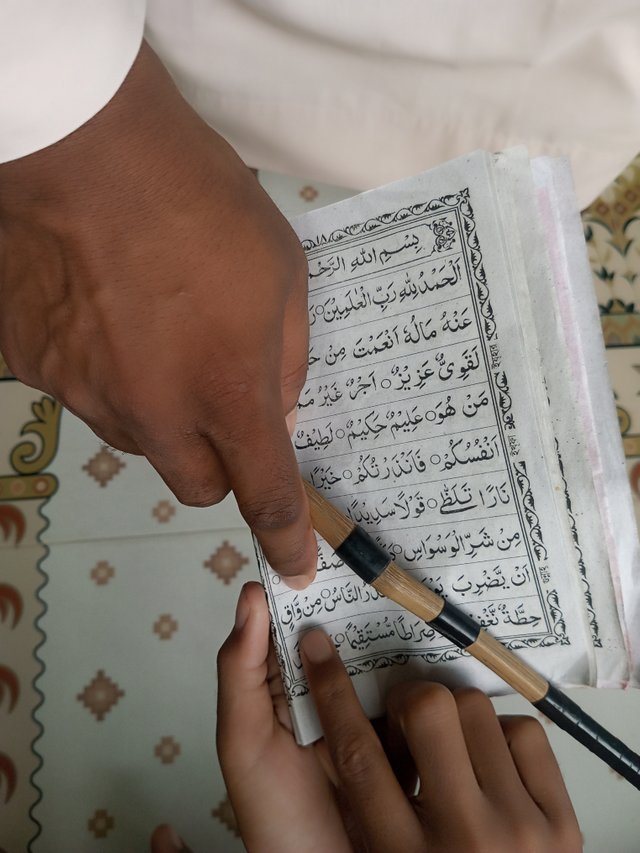 ١٨
بِسْمِ اللهِ
اَلْحَمْدُ لِلّٰهِ رَبِّ الْعٰلَمِيْنَ ○
عَنْهُ مَالُهٗ اَنْعَمْتَ مِنْ
لَقَوِيٌّ عَزِيْزٌ ○ اَجْرٌ غَيْرُ
مَنْ هُوَ ○ عَلِيْمٌ حَكِيْمٌ ○ لَطِيْفٌ
اَنْفُسَكُمْ ○ فَاَنْذَرْتُكُمْ ○ خَيْرًا
نَارًا تَلَظّٰى ○ قَوْلًا سَدِيْدًا
مِنْ شَرِّ الْوَسْوَاسِ ○
اَنْ يَّضْرِبَ النَّاسُ ○ مِنْ وَّاقٍ ○
حِطَّةٌ نَّغْفِرْ صِرَاطًا مُّسْتَقِيْمًا ○